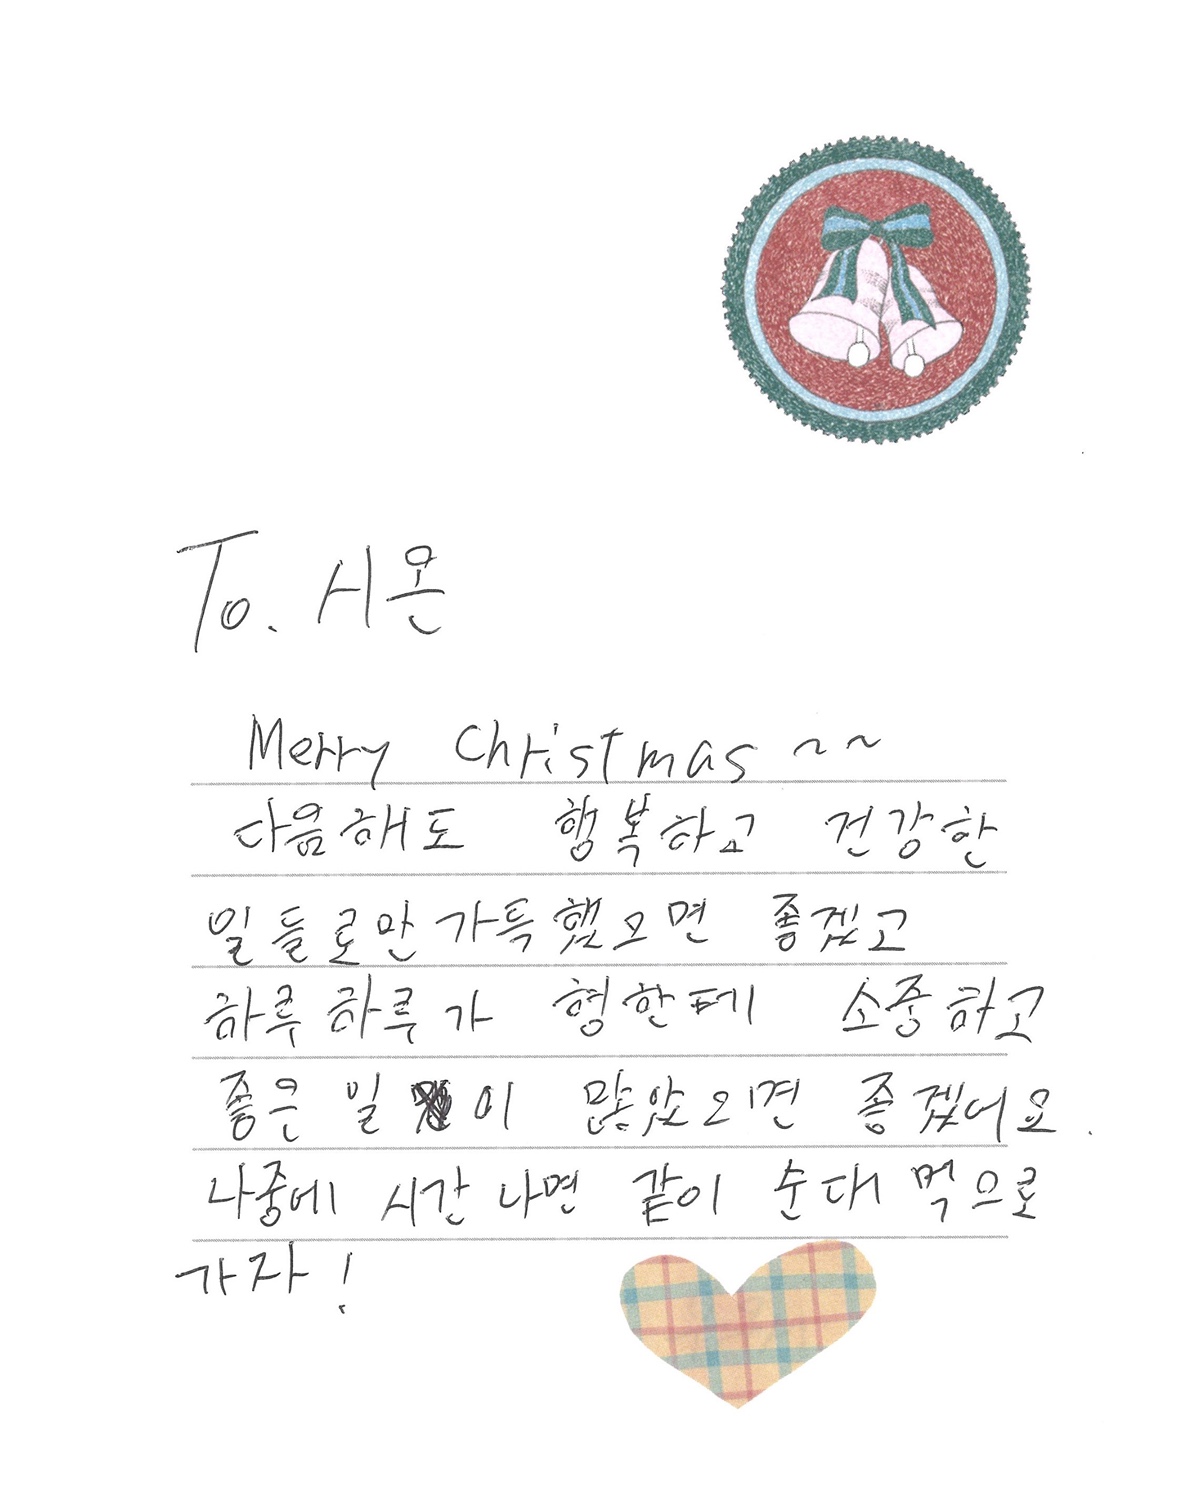 To. 시온
Merry Christmas ~~
다음해도 행복하고 건강한
일들로만 가득했으면 좋겠고
하루하루가 형한테 소중하고
좋은 일이 많았으면 좋겠어요.
나중에 시간 나면 같이 순대 먹으로
가자!